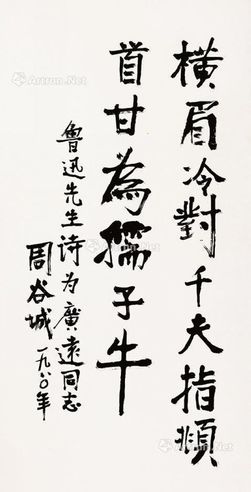 横眉冷對千夫指頫
首甘為孺子牛
魯迅先生诗为廣遠同志
周谷城一九八〇年
Artron.Net
Artron.Net